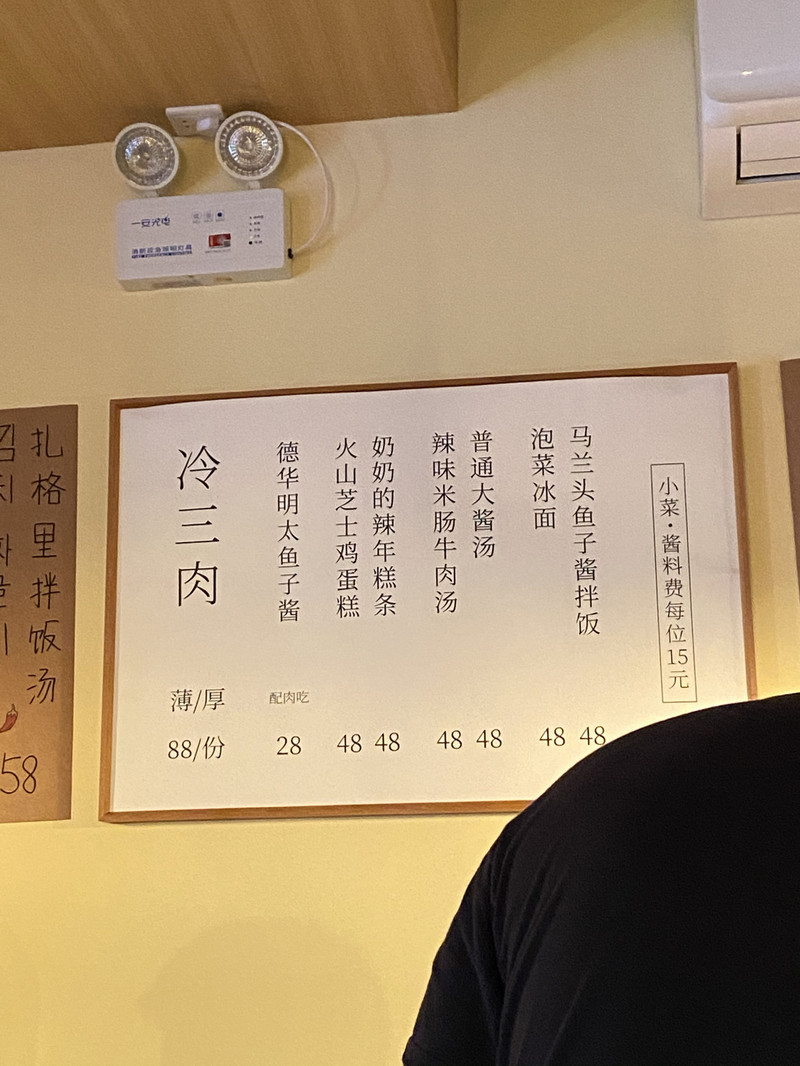 一安光电
消防应急照明灯具
FIRE EMERGENCY LIGHTING
扎格里拌饭汤
58
冷三肉
薄/厚
88/份
德华明太鱼子酱
配肉吃
28
火山芝士鸡蛋糕
48
奶奶的辣年糕条
48
辣味米肠牛肉汤
48
普通大酱汤
48
泡菜冰面
48
马兰头鱼子酱拌饭
48
小菜·酱料费每位15元